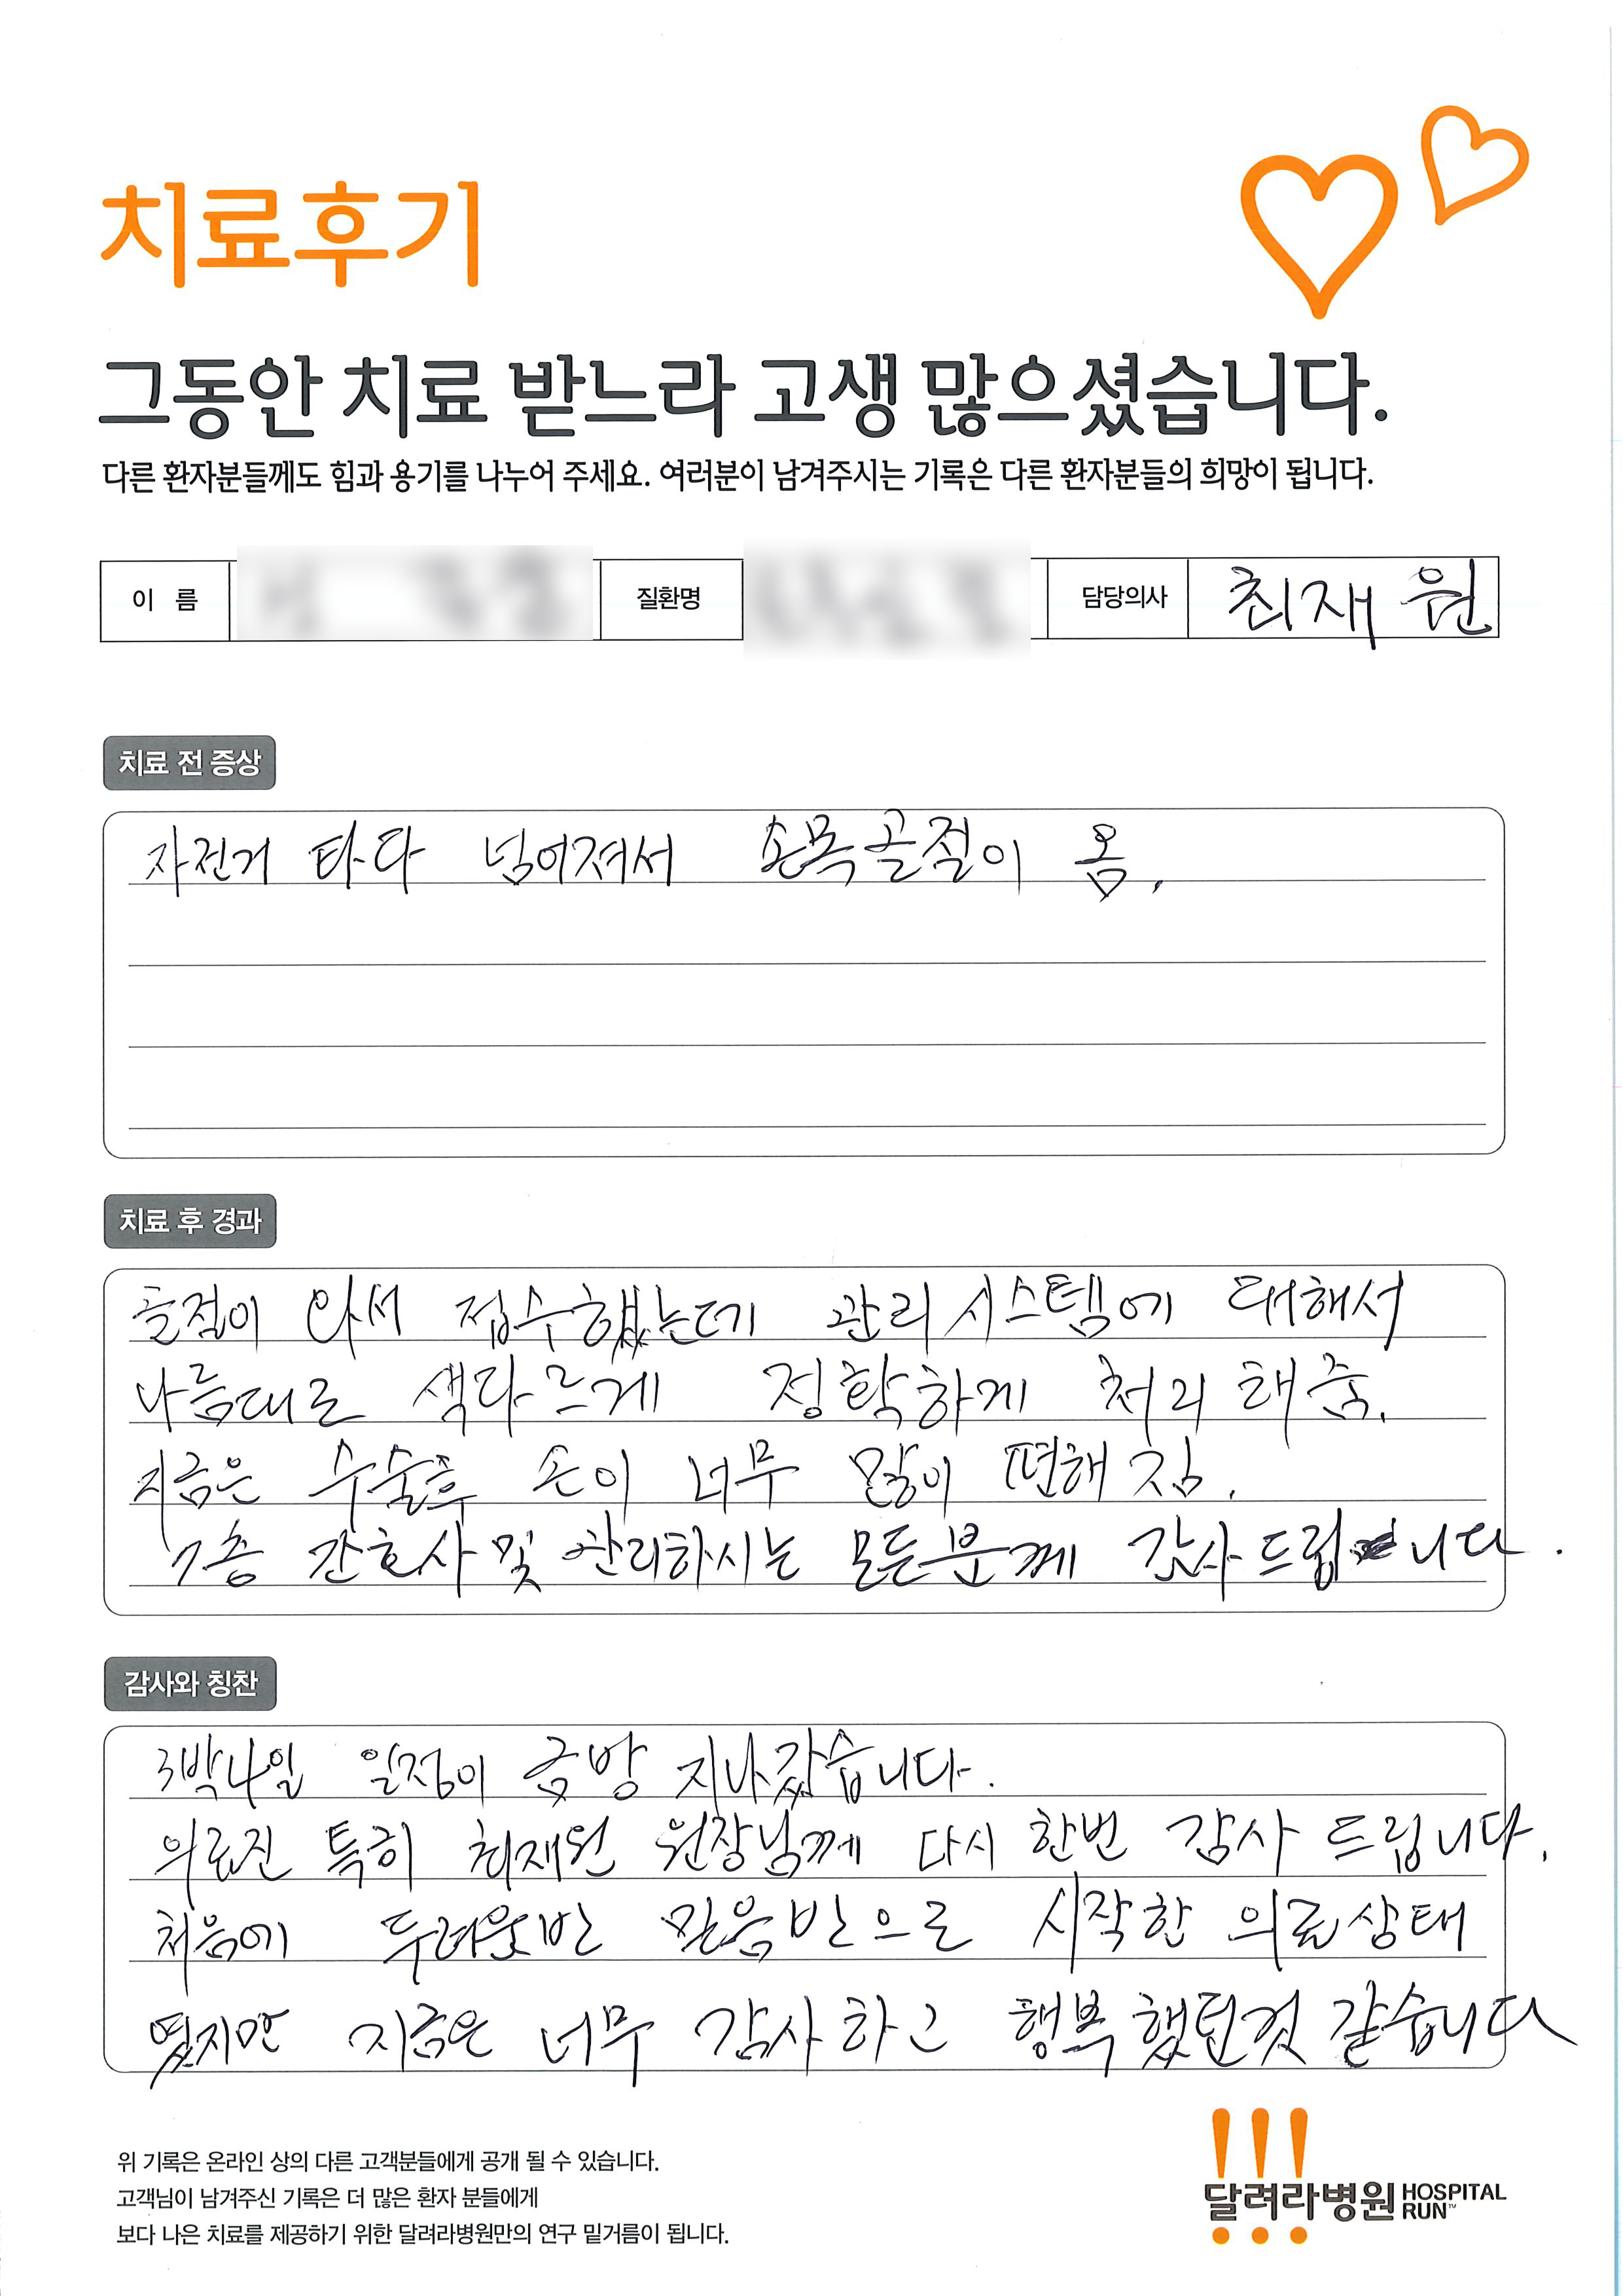 치료후기
그동안 치료 받느라 고생 많으셨습니다.
다른 환자분들께도 힘과 용기를 나누어 주세요. 여러분이 남겨주시는 기록은 다른 환자분들의 희망이 됩니다.
이 름 질환명 담당의사 최재원
치료 전 증상
자전거 타다 넘어져서 손목골절이 옴.
치료 후 경과
골절이 와서 접수했는데 관리시스템에 대해서
나름대로 색다르게 정확하게 처리해줌.
지금은 수술후 손이 너무 많이 편해짐.
7층 간호사 및 관리하시는 모든분께 감사드립니다.
감사와 칭찬
3박4일 일정이 금방 지나갔습니다.
의료진 특히 최재원 원장님께 다시 한번 감사 드립니다.
처음에 두려움반 믿음반으로 시작한 의료상태
였지만 지금은 너무 감사하고 행복했던것 같습니다
위 기록은 온라인 상의 다른 고객분들에게 공개 될 수 있습니다.
고객님이 남겨주신 기록은 더 많은 환자 분들에게
보다 나은 치료를 제공하기 위한 달려라병원만의 연구 밑거름이 됩니다.
달려라병원 HOSPITAL RUN™